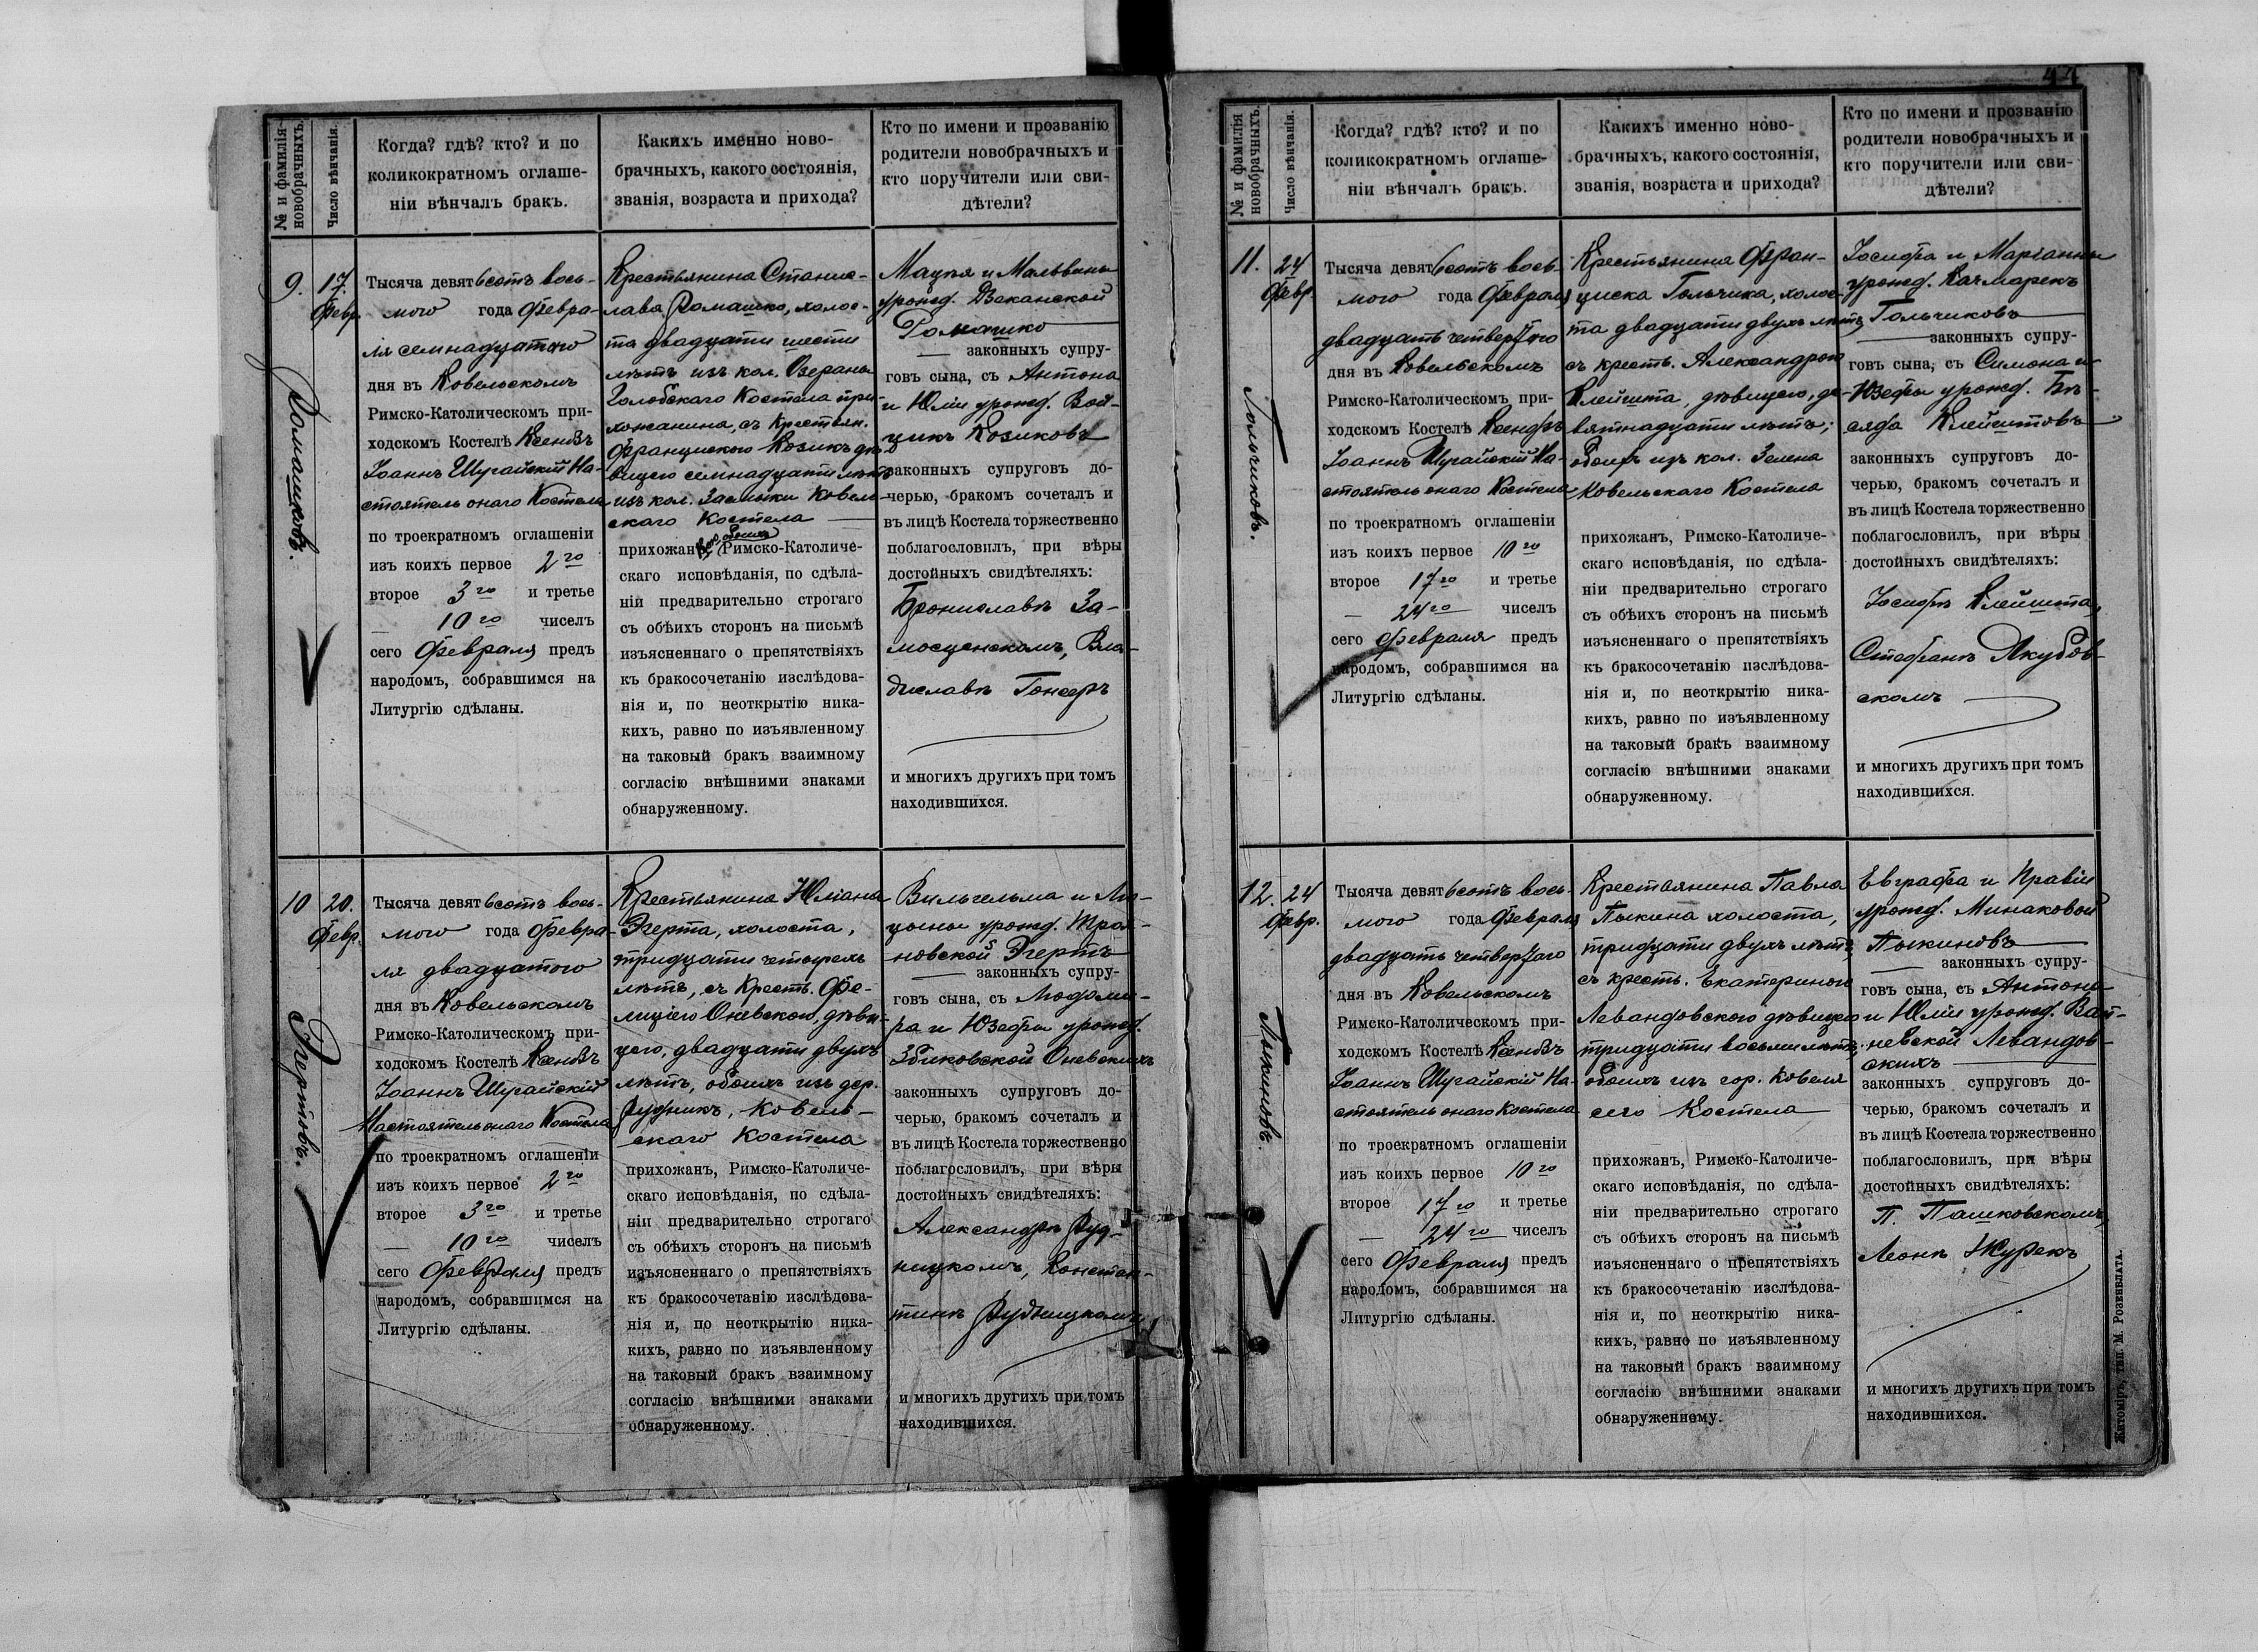 № и фамилія
новобрачныхъ.
Число вѣнчанія.
Когда? гдѣ? кто? и по
коликократномъ оглаше-
ніи вѣнчалъ бракъ.
Какихъ именно ново-
брачныхъ, какого состоянія,
званія, возраста и прихода?
Кто по имени и прозванію
родители новобрачныхъ и
кто поручители или сви-
дѣтели?
9.
17.
Февр.
Ромашковъ.
Тысяча девятьсотъ вось-
мого года Февра-
ля семнадцатого
дня въ Ковельскомъ
Римско-Католическомъ при-
ходскомъ Костелѣ Ксендзъ
Іоаннъ Шугайскій На-
стоятель онаго Костела
по троекратномъ оглашеніи
изъ коихъ первое 2го
второе 3го и третье
10го чиселъ
сего Февраля предъ
народомъ, собравшимся на
Литургію сдѣланы.
Крестьянина Станис-
лава Ромашко, холос-
та двадцати шести
лѣтъ изъ кол. Озераны
Голобскаго Костела при-
хожанина, съ Крестьян.
Францишкою Козикъ дѣ-
вицею семнадцати лѣтъ
изъ кол. Засмыки Ковель-
скаго Костела
прихожанъ, Римско-Католиче-
скаго исповѣданія, по сдѣла-
ніи предварительно строгаго
съ обѣихъ сторонъ на письмѣ
изъясненнаго о препятствіяхъ
къ бракосочетанію изслѣдова-
нія и, по неоткрытію ника-
кихъ, равно по изъявленному
на таковый бракъ взаимному
согласію внѣшними знаками
обнаруженному.
Мацея и Мальвины
урожд. Дзеканской
Ромашко
законныхъ супру-
говъ сына, съ Антона
и Юліи урожд. Вой-
цикъ Козиковъ
законныхъ супруговъ до-
черью, бракомъ сочеталъ и
въ лицѣ Костела торжественно
поблагословилъ, при вѣры
достойныхъ свидѣтеляхъ:
Брониславѣ За-
мосценскомъ, Вла-
диславѣ Гонсеръ
и многихъ другихъ при томъ
находившихся.
10
20.
Февр.
Эгертовъ.
Тысяча девятьсотъ вось-
мого года Февра-
ля двадцатого
дня въ Ковельскомъ
Римско-Католическомъ при-
ходскомъ Костелѣ Ксендзъ
Іоаннъ Шугайскій
Настоятель онаго Костела
по троекратномъ оглашеніи
изъ коихъ первое 2го
второе 3го и третье
10го чиселъ
сего Февраля предъ
народомъ, собравшимся на
Литургію сдѣланы.
Крестьянина Юліана
Эгерта, холоста,
тридцати четырехъ
лѣтъ, съ Крестъ. Фе-
лиціею Оневскою, дѣви-
цею, двадцати двухъ
лѣтъ, обоихъ изъ дер.
Рудникъ, Ковель-
скаго Костела
прихожанъ, Римско-Католиче-
скаго исповѣданія, по сдѣла-
ніи предварительно строгаго
съ обѣихъ сторонъ на письмѣ
изъясненнаго о препятствіяхъ
къ бракосочетанію изслѣдова-
нія и, по неоткрытію ника-
кихъ, равно по изъявленному
на таковый бракъ взаимному
согласію внѣшними знаками
обнаруженному.
Вильгельма и Лю-
цыны урожд. Троя-
новской Эгертъ
законныхъ супру-
говъ сына, съ Людоми-
ра и Юзефы урожд.
Збиковской Оневскихъ
законныхъ супруговъ до-
черью, бракомъ сочеталъ и
въ лицѣ Костела торжественно
поблагословилъ, при вѣры
достойныхъ свидѣтеляхъ:
Александрѣ Руд-
ницкомъ, Констан-
тинѣ Рудницкомъ
и многихъ другихъ при томъ
находившихся.
44
№ и фамилія
новобрачныхъ.
Число вѣнчанія.
Когда? гдѣ? кто? и по
коликократномъ оглаше-
ніи вѣнчалъ бракъ.
Какихъ именно ново-
брачныхъ, какого состоянія,
званія, возраста и прихода?
Кто по имени и прозванію
родители новобрачныхъ и
кто поручители или сви-
дѣтели?
11.
24
Февр.
Гольчиковъ.
Тысяча девятьсотъ вось-
мого года Февраля
двадцать четвертого
дня въ Ковельскомъ
Римско-Католическомъ при-
ходскомъ Костелѣ Ксендзъ
Іоаннъ Шугайскій На-
стоятель онаго Костела
по троекратномъ оглашеніи
изъ коихъ первое 10го
второе 17го и третье
24го чиселъ
сего Февраля предъ
народомъ, собравшимся на
Литургію сдѣланы.
Крестьянина Фран-
циска Гольчика, холос-
та двадцати двухъ лѣтъ,
съ крестъ. Александрою
Клейшта, дѣвицею, де-
вятнадцати лѣтъ;
обоихъ изъ кол. Зелена
Ковельскаго Костела
прихожанъ, Римско-Католиче-
скаго исповѣданія, по сдѣла-
ніи предварительно строгаго
съ обѣихъ сторонъ на письмѣ
изъясненнаго о препятствіяхъ
къ бракосочетанію изслѣдова-
нія и, по неоткрытію ника-
кихъ, равно по изъявленному
на таковый бракъ взаимному
согласію внѣшними знаками
обнаруженному.
Іосифа и Маріанны
урожд. Качмарекъ
Гольчиковъ
законныхъ супру-
говъ сына, съ Симона и
Юзефы урожд. Бѣ-
сяда Клейштовъ
законныхъ супруговъ до-
черью, бракомъ сочеталъ и
въ лицѣ Костела торжественно
поблагословилъ, при вѣры
достойныхъ свидѣтеляхъ:
Іосифѣ Клейшта,
Стефанѣ Якубов-
скомъ
и многихъ другихъ при томъ
находившихся.
12.
24
Февр.
Пыкиновъ.
Тысяча девятьсотъ вось-
мого года Февраля
двадцать четвертого
дня въ Ковельскомъ
Римско-Католическомъ при-
ходскомъ Костелѣ Ксендзъ
Іоаннъ Шугайскій На-
стоятель онаго Костела
по троекратномъ оглашеніи
изъ коихъ первое 10го
второе 17го и третье
24го чиселъ
сего Февраля предъ
народомъ, собравшимся на
Литургію сдѣланы.
Крестьянина Павла
Пыкина холоста,
тридцати двухъ лѣтъ,
съ крестъ. Екатериною
Левандовскою дѣвицею
тридцати восьми лѣтъ,
обоихъ изъ гор. Ковеля
сего Костела
прихожанъ, Римско-Католиче-
скаго исповѣданія, по сдѣла-
ніи предварительно строгаго
съ обѣихъ сторонъ на письмѣ
изъясненнаго о препятствіяхъ
къ бракосочетанію изслѣдова-
нія и, по неоткрытію ника-
кихъ, равно по изъявленному
на таковый бракъ взаимному
согласію внѣшними знаками
обнаруженному.
Евграфа и Иравіи
урожд. Минаковой
Пыкиновъ
законныхъ супру-
говъ сына, съ Антона
и Юліи урожд. Вай-
невской Левандов-
скихъ
законныхъ супруговъ до-
черью, бракомъ сочеталъ и
въ лицѣ Костела торжественно
поблагословилъ, при вѣры
достойныхъ свидѣтеляхъ:
П. Пашковскомъ,
Леонѣ Журекъ
и многихъ другихъ при томъ
находившихся.
Житоміръ, тип. М. Розенблата.